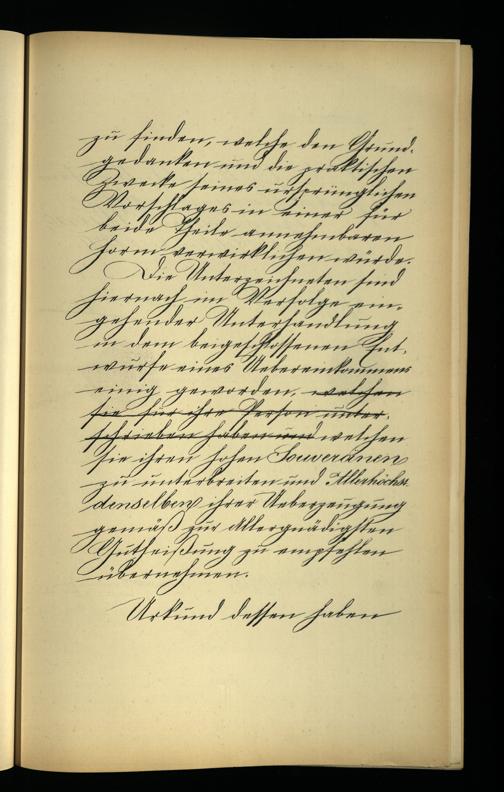 zu finden, welche den Grund-
gedanken und die praktischen
Zwecke seines ursprünglichen
Vorschlages in einer für
beide Theile annehmbaren
Form verwirklichen würde.
Die Unterzeichneten sind
hiernach im Verfolge ein-
gehender Unterhandlung
in dem beigeschlossenen Ent-
wurfe eines Uebereinkommens
einig geworden, welchen
sie für ihre Person unter-
schrieben haben und welchen
sie ihren hohen Souveränen
zu unterbreiten und Allerhöchst-
denselben ihrer Ueberzeugung
gemäß zur Allergnädigsten
Gutheißung zu empfehlen
übernehmen.
Urkund dessen haben